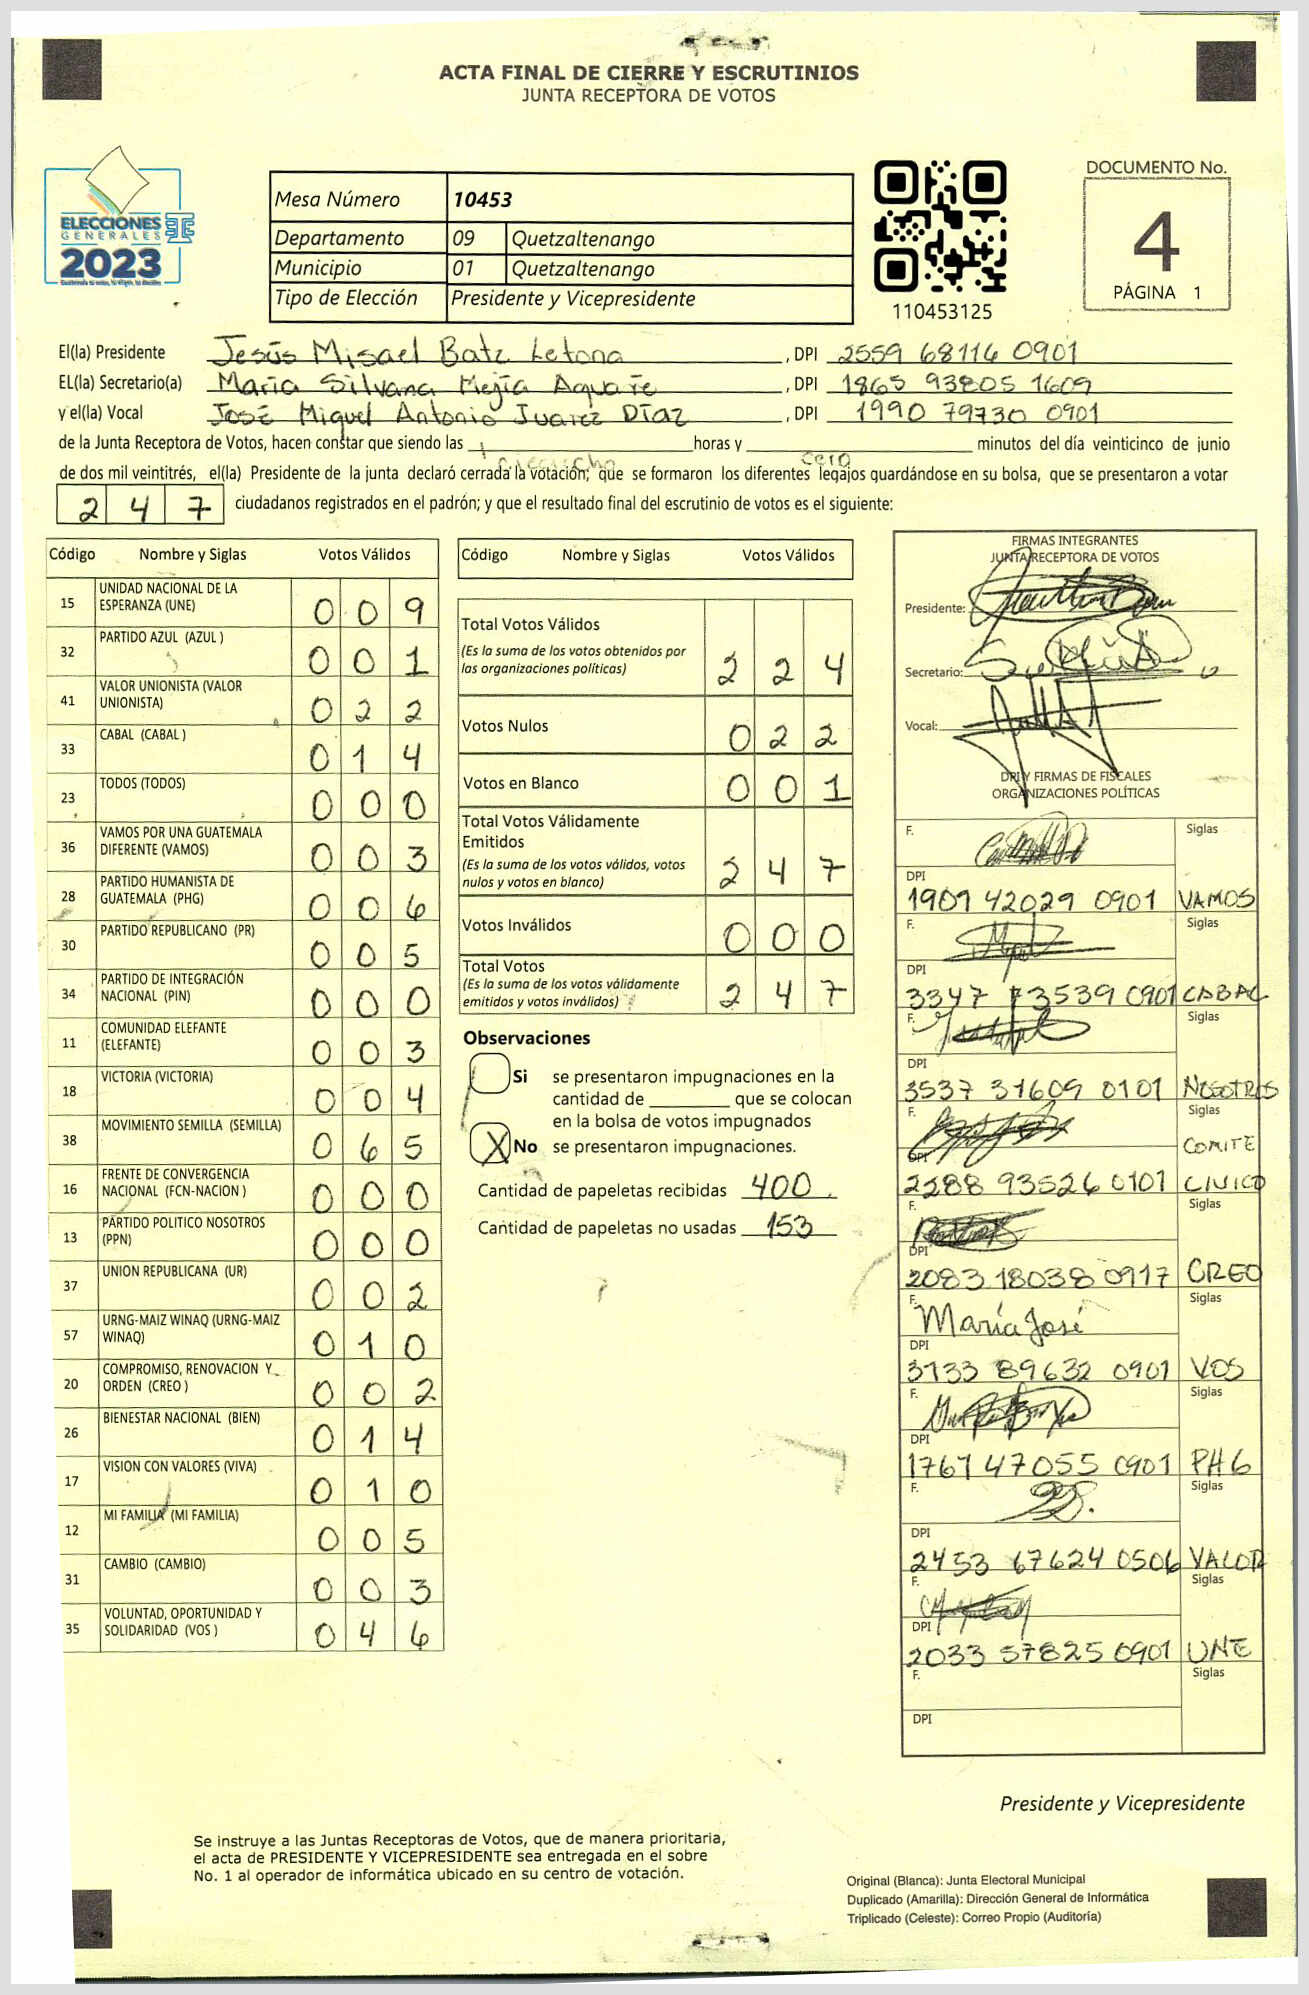 ACTA FINAL DE CIERRE Y ESCRUTINIOS
JUNTA RECEPTORA DE VOTOS
ELECCIONES
GENERALES
2023
Mesa Número 10453
Departamento 09 Quetzaltenango
Municipio 01 Quetzaltenango
Tipo de Elección Presidente y Vicepresidente
110453125
DOCUMENTO No.
4
PÁGINA 1
El(la) Presidente Jesús Misael Batz Letona, DPI 2559 68116 0901
EL(la) Secretario(a) María Silvana Mejía Aguare, DPI 1865 93805 1609
y el(la) Vocal José Miguel Antonio Juarez Díaz, DPI 1990 79730 0901
de la Junta Receptora de Votos, hacen constar que siendo las dieciocho horas y cero minutos del día veinticinco de junio
de dos mil veintitrés, el(la) Presidente de la junta declaró cerrada la votación; que se formaron los diferentes legajos guardándose en su bolsa, que se presentaron a votar
247 ciudadanos registrados en el padrón; y que el resultado final del escrutinio de votos es el siguiente:
Código Nombre y Siglas Votos Válidos
15 UNIDAD NACIONAL DE LA ESPERANZA (UNE) 009
32 PARTIDO AZUL (AZUL ) 001
41 VALOR UNIONISTA (VALOR UNIONISTA) 022
33 CABAL (CABAL ) 014
23 TODOS (TODOS) 000
36 VAMOS POR UNA GUATEMALA DIFERENTE (VAMOS) 003
28 PARTIDO HUMANISTA DE GUATEMALA (PHG) 006
30 PARTIDO REPUBLICANO (PR) 005
34 PARTIDO DE INTEGRACIÓN NACIONAL (PIN) 000
11 COMUNIDAD ELEFANTE (ELEFANTE) 003
18 VICTORIA (VICTORIA) 004
38 MOVIMIENTO SEMILLA (SEMILLA) 065
16 FRENTE DE CONVERGENCIA NACIONAL (FCN-NACION ) 000
13 PARTIDO POLITICO NOSOTROS (PPN) 000
37 UNION REPUBLICANA (UR) 002
57 URNG-MAIZ WINAQ (URNG-MAIZ WINAQ) 010
20 COMPROMISO, RENOVACION Y ORDEN (CREO ) 002
26 BIENESTAR NACIONAL (BIEN) 014
17 VISION CON VALORES (VIVA) 010
12 MI FAMILIA (MI FAMILIA) 005
31 CAMBIO (CAMBIO) 003
35 VOLUNTAD, OPORTUNIDAD Y SOLIDARIDAD (VOS ) 046
Código Nombre y Siglas Votos Válidos
Total Votos Válidos 224
(Es la suma de los votos obtenidos por
las organizaciones políticas)
Votos Nulos 022
Votos en Blanco 001
Total Votos Válidamente
Emitidos 247
(Es la suma de los votos válidos, votos
nulos y votos en blanco)
Votos Inválidos 000
Total Votos 247
(Es la suma de los votos válidamente
emitidos y votos inválidos)
Observaciones
Si se presentaron impugnaciones en la
cantidad de ________ que se colocan
en la bolsa de votos impugnados
X No se presentaron impugnaciones.
Cantidad de papeletas recibidas 400
Cantidad de papeletas no usadas 153
FIRMAS INTEGRANTES
JUNTA RECEPTORA DE VOTOS
Presidente:
Secretario:
Vocal:
DPI Y FIRMAS DE FISCALES
ORGANIZACIONES POLÍTICAS
F. Siglas
DPI
1901 42029 0901 VAMOS
F. Siglas
DPI
3347 73539 0901 CABAL
F. Siglas
DPI
3537 31609 0101 NOSOTROS
F. Siglas
DPI COMITE
2288 93526 0101 CIVICO
F. Siglas
DPI
2083 18038 0917 CREO
F. Siglas
María José
DPI
3133 89632 0901 VOS
F. Siglas
DPI
1767 47055 0901 PHG
F. Siglas
DPI
2453 67624 0506 VALOR
F. Siglas
DPI
2033 57825 0901 UNE
F. Siglas
DPI
Presidente y Vicepresidente
Se instruye a las Juntas Receptoras de Votos, que de manera prioritaria,
el acta de PRESIDENTE Y VICEPRESIDENTE sea entregada en el sobre
No. 1 al operador de informática ubicado en su centro de votación.
Original (Blanca): Junta Electoral Municipal
Duplicado (Amarilla): Dirección General de Informática
Triplicado (Celeste): Correo Propio (Auditoría)